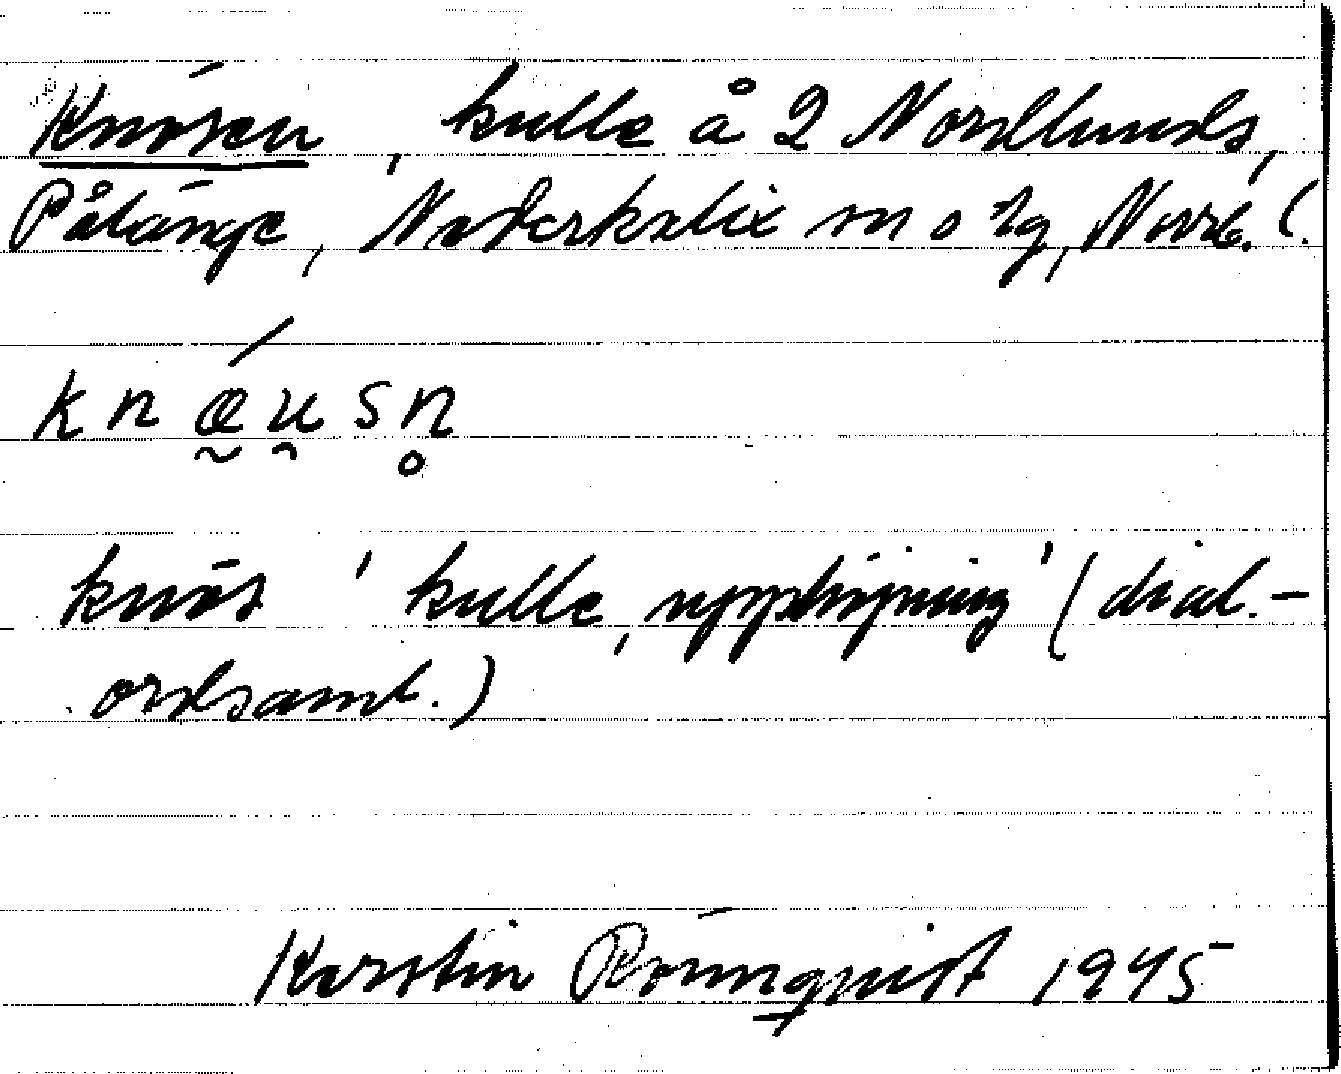 Knösen, kulle å 2 Nordlunds,
Pålänge, Nederkalix sn o tg, Norrb. l.
knǽu̯sn̥
knös 'kulle, upphöjning' (dial.-
ordsaml.)
Kerstin Rönnqvist 1945